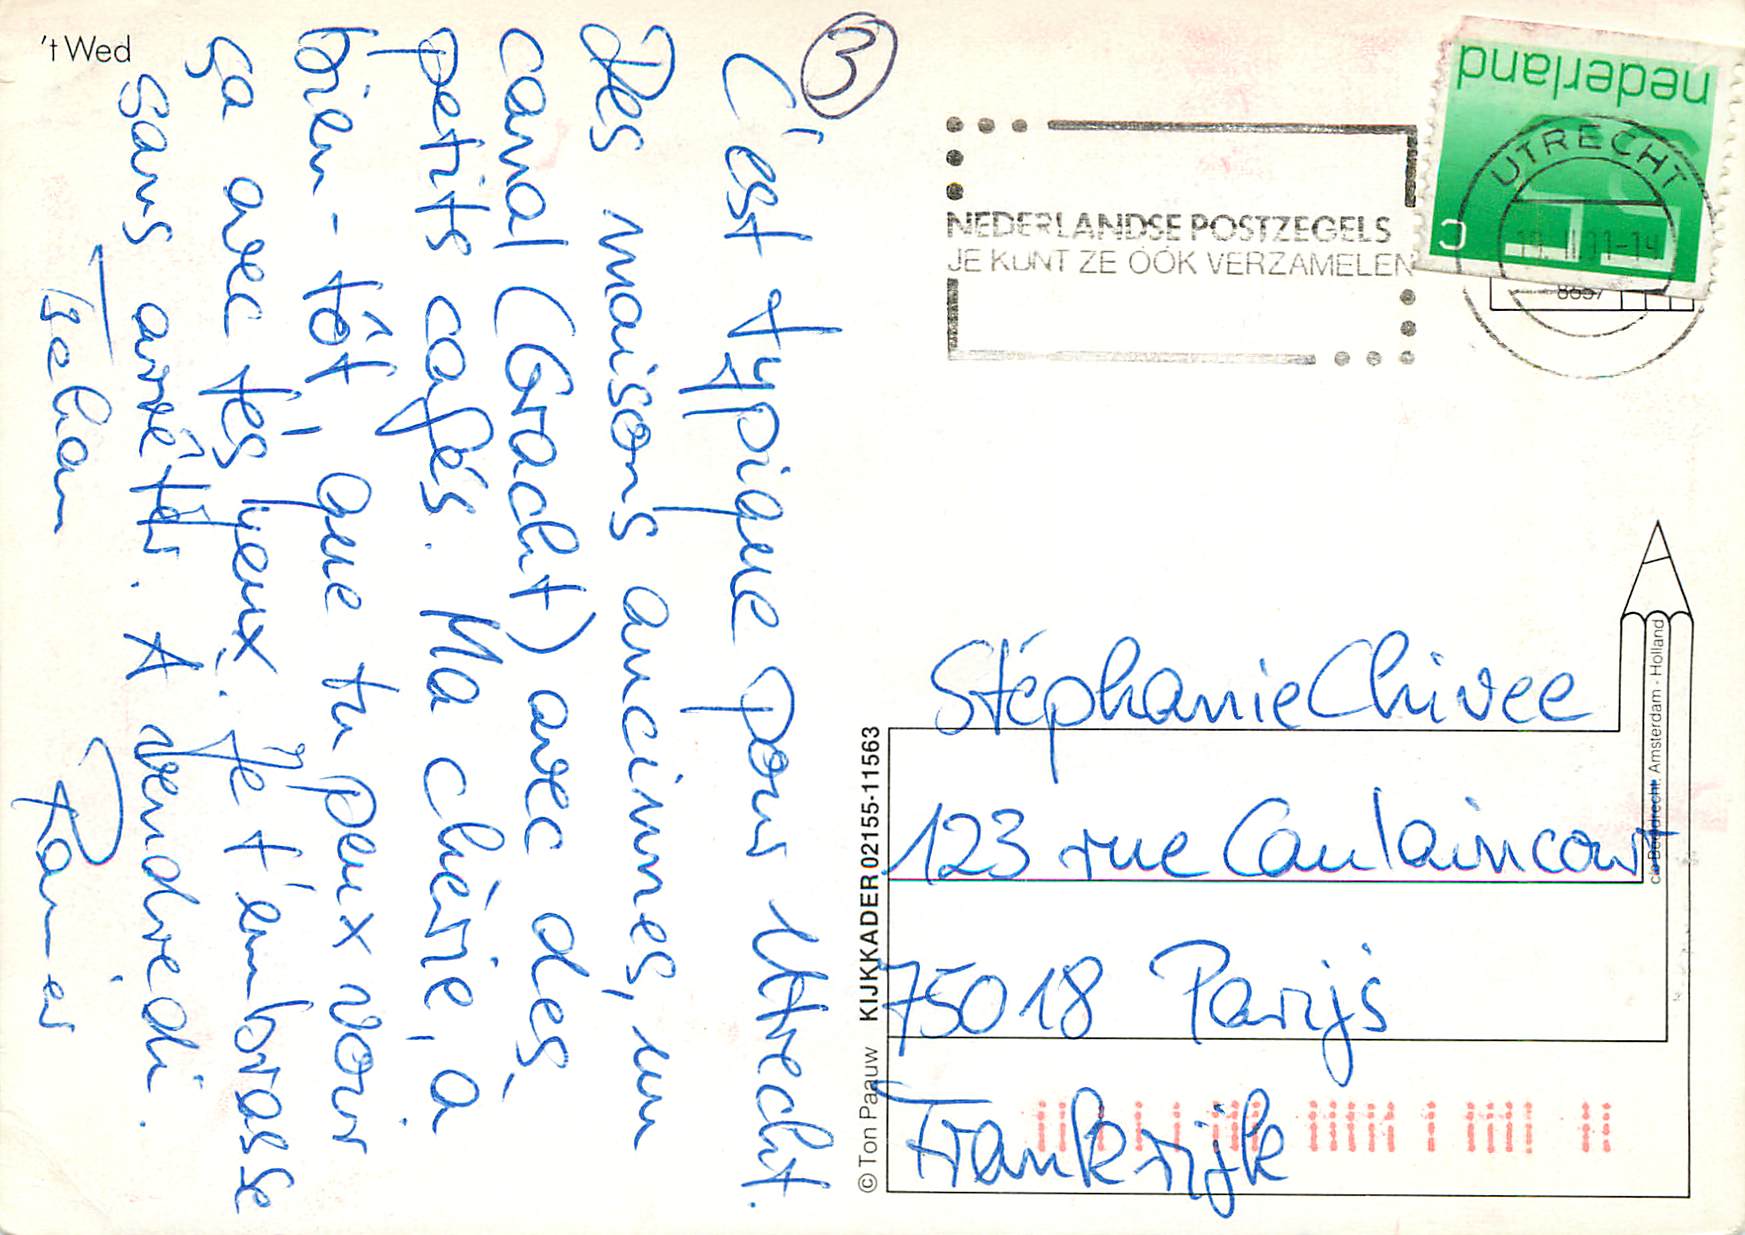 't Wed
3
C'est typique pour Utrecht.
Des maisons ancinnes, un
canal (Gracht) avec des,
petits cafés. Ma chérie, à
bien-tôt, que tu peux voir
ça avec tés yeux. Je t'embrasse
sans arrêter. A vendredi.
NEDERLANDSE POSTZEGELS
JE KUNT ZE ÓÓK VERZAMELEN
nederland
75
C
UTRECHT
Stéphanie Chivee
123 rue Caulaincourt
75018 Parijs
Frankrijk
© Ton Paauw KIJKKADER 02155-11563
Amsterdam - Holland